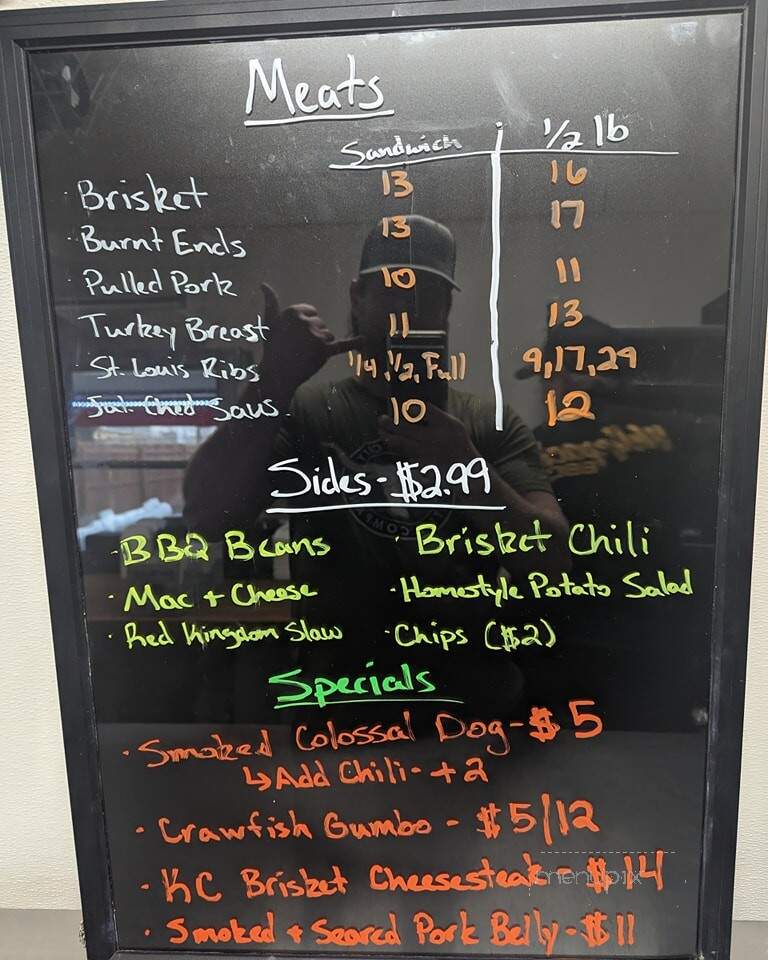 Meats
Sandwich 1/2 lb
· Brisket 13 16
· Burnt Ends 13 17
· Pulled Pork 10 11
Turkey Breast 11 13
· St. Louis Ribs 1/4, 1/2, Full 9,17,29
Jal. Ched Saus. 10 12
Sides - $2.99
· BBQ Beans · Brisket Chili
· Mac + Cheese · Homestyle Potato Salad
· Red Kingdom Slaw · Chips ($2)
Specials
· Smoked Colossal Dog - $5
↳ Add Chili - + 2
· Crawfish Gumbo - $5/12
· KC Brisket Cheesesteak - $14
menupix
· Smoked + Seared Pork Belly - $11